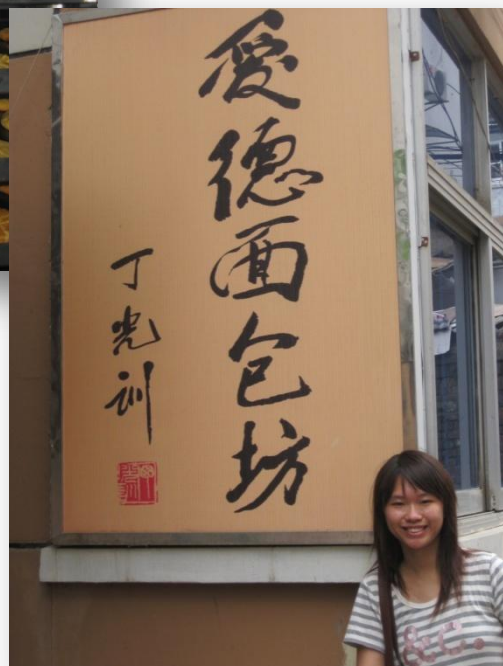 爱德面包坊
丁光训